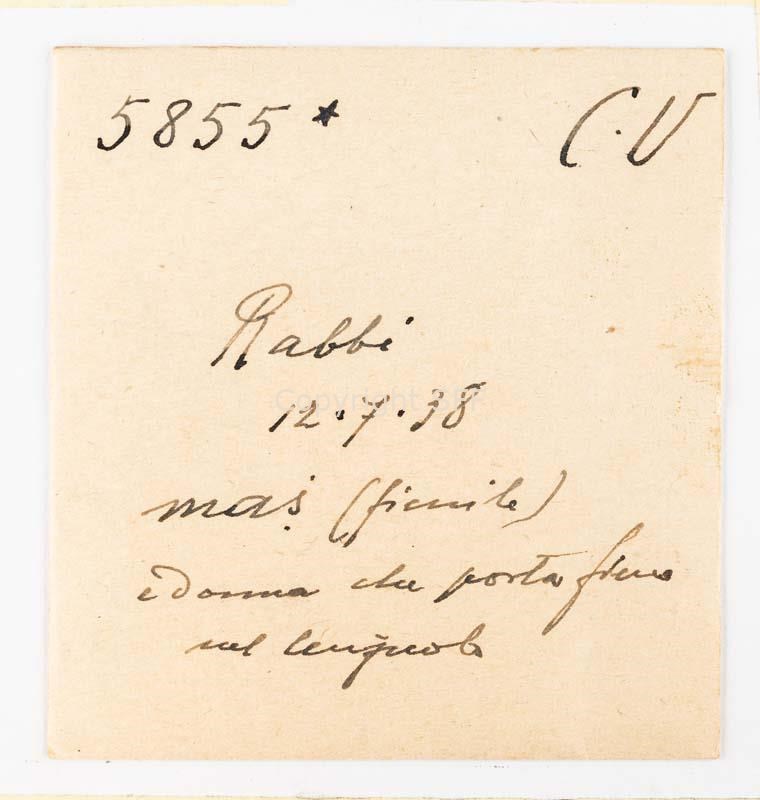 5855* C.V
Rabbi
12.7.38
maṩ (fienile)
e donna che porta fieno
nel lenzuolo